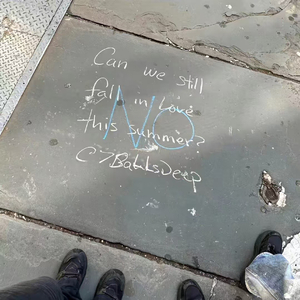 Can we still
fall in love
this summer?
NO